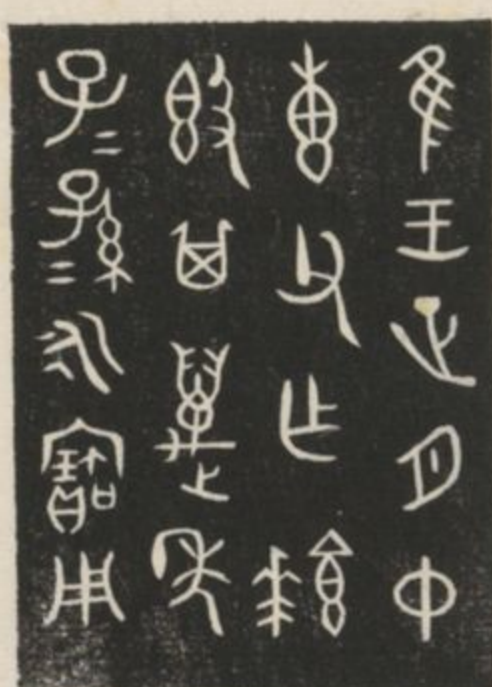 隹王正月中
叀父乍䭬
𣪘其萬年
子=孫=永寶用